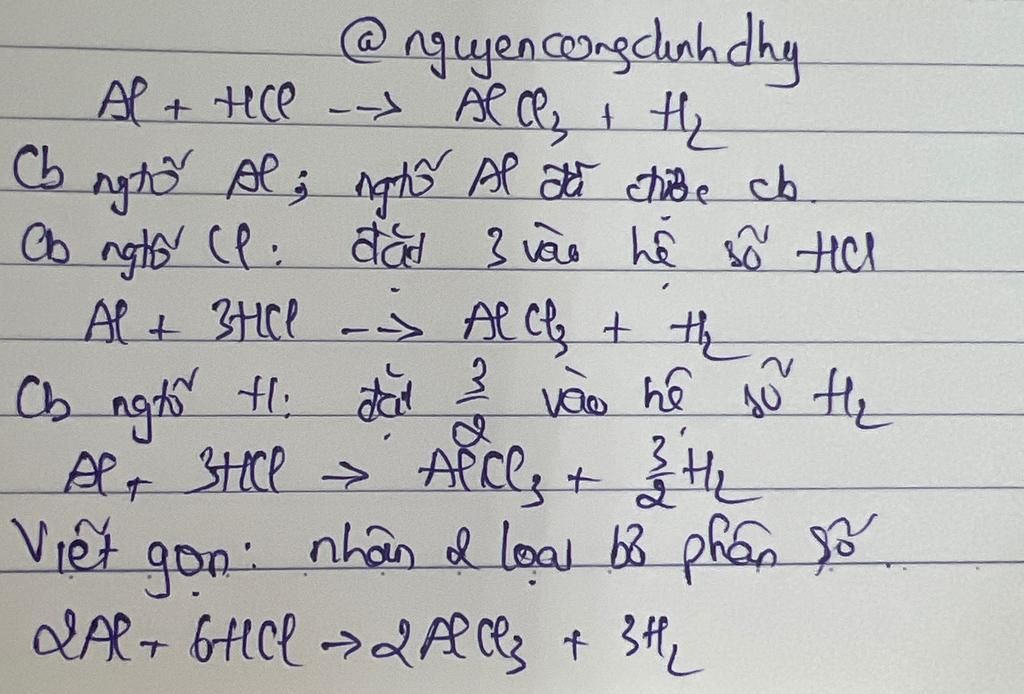 @nguyencongdinhdhy
Al + HCl --> AlCl₃ + H₂
Cb ngtố Al; ngtố Al đã được cb.
Cb ngtố Cl: đặt 3 vào hệ số HCl
Al + 3HCl --> AlCl₃ + H₂
Cb ngtố H: đặt 3/2 vào hệ số H₂
Al + 3HCl → AlCl₃ + 3/2 H₂
Viết gọn: nhân 2 loại bỏ phân số.
2Al + 6HCl → 2AlCl₃ + 3H₂